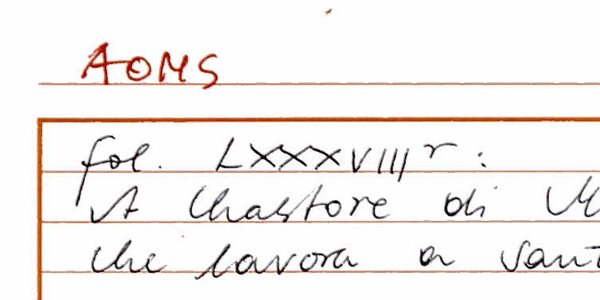 AOMS
fol. LXXXVIII r:
A Chastore di
che lavora a